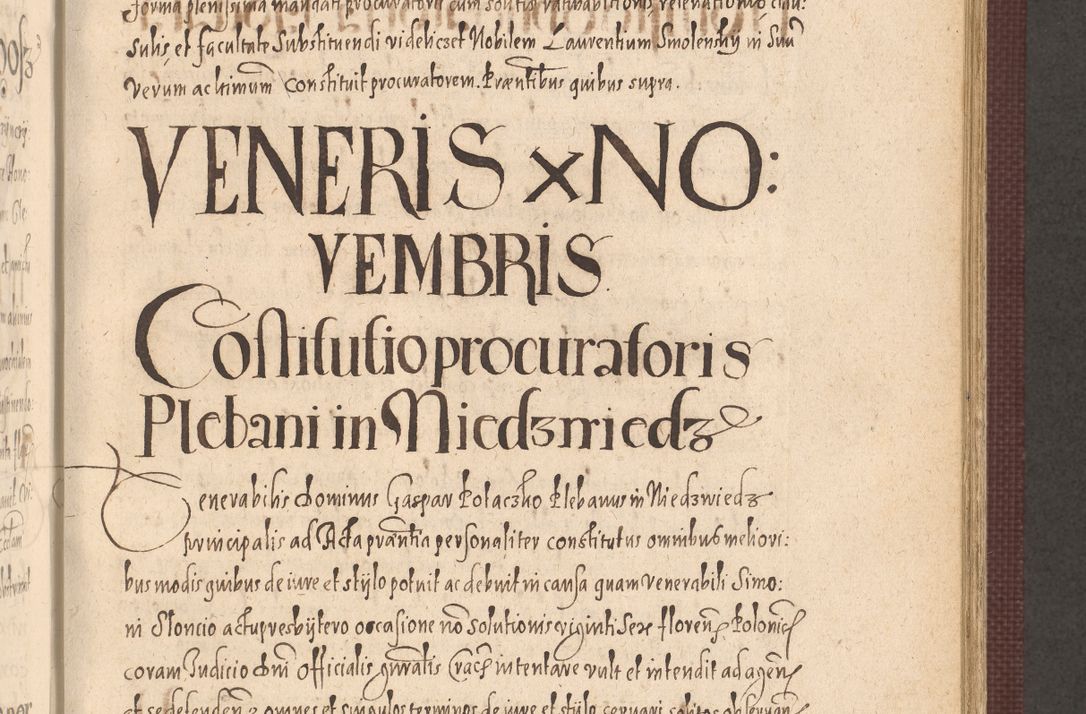 forma plenissima mandati procuratorii cum solitis ratihabitionis, relevationis clau:
sulis, et facultate Substituendi videliczet Nobilem Laurentium Smolenskÿ in Suũ
verum ac l̃timum constituit procuratorem. Præñtibus quibus supra.
VENERIS x NO:
VEMBRIS
Costitutio procuratoris
Plebani in Niedzwiedz
Venerabilis dominus Gaspar Polaczko Plebanus in Niedzwiedz
principalis ad Acta præñtia personaliter constitutus omnibus meliori:
bus modis quibus de iure et stÿlo potuit ac debuit in causa quam venerabili Simo:
ni Sloncio actu presbÿtero occasione nõ solutionis viginti sex floreñ Polonic
coram Judicio dñi Officialis gñralis Crac̃ intentare vult et intendit ad ageñ
et se defendeñ omnes et singulos terminos de iure et stilo servari solitos observan